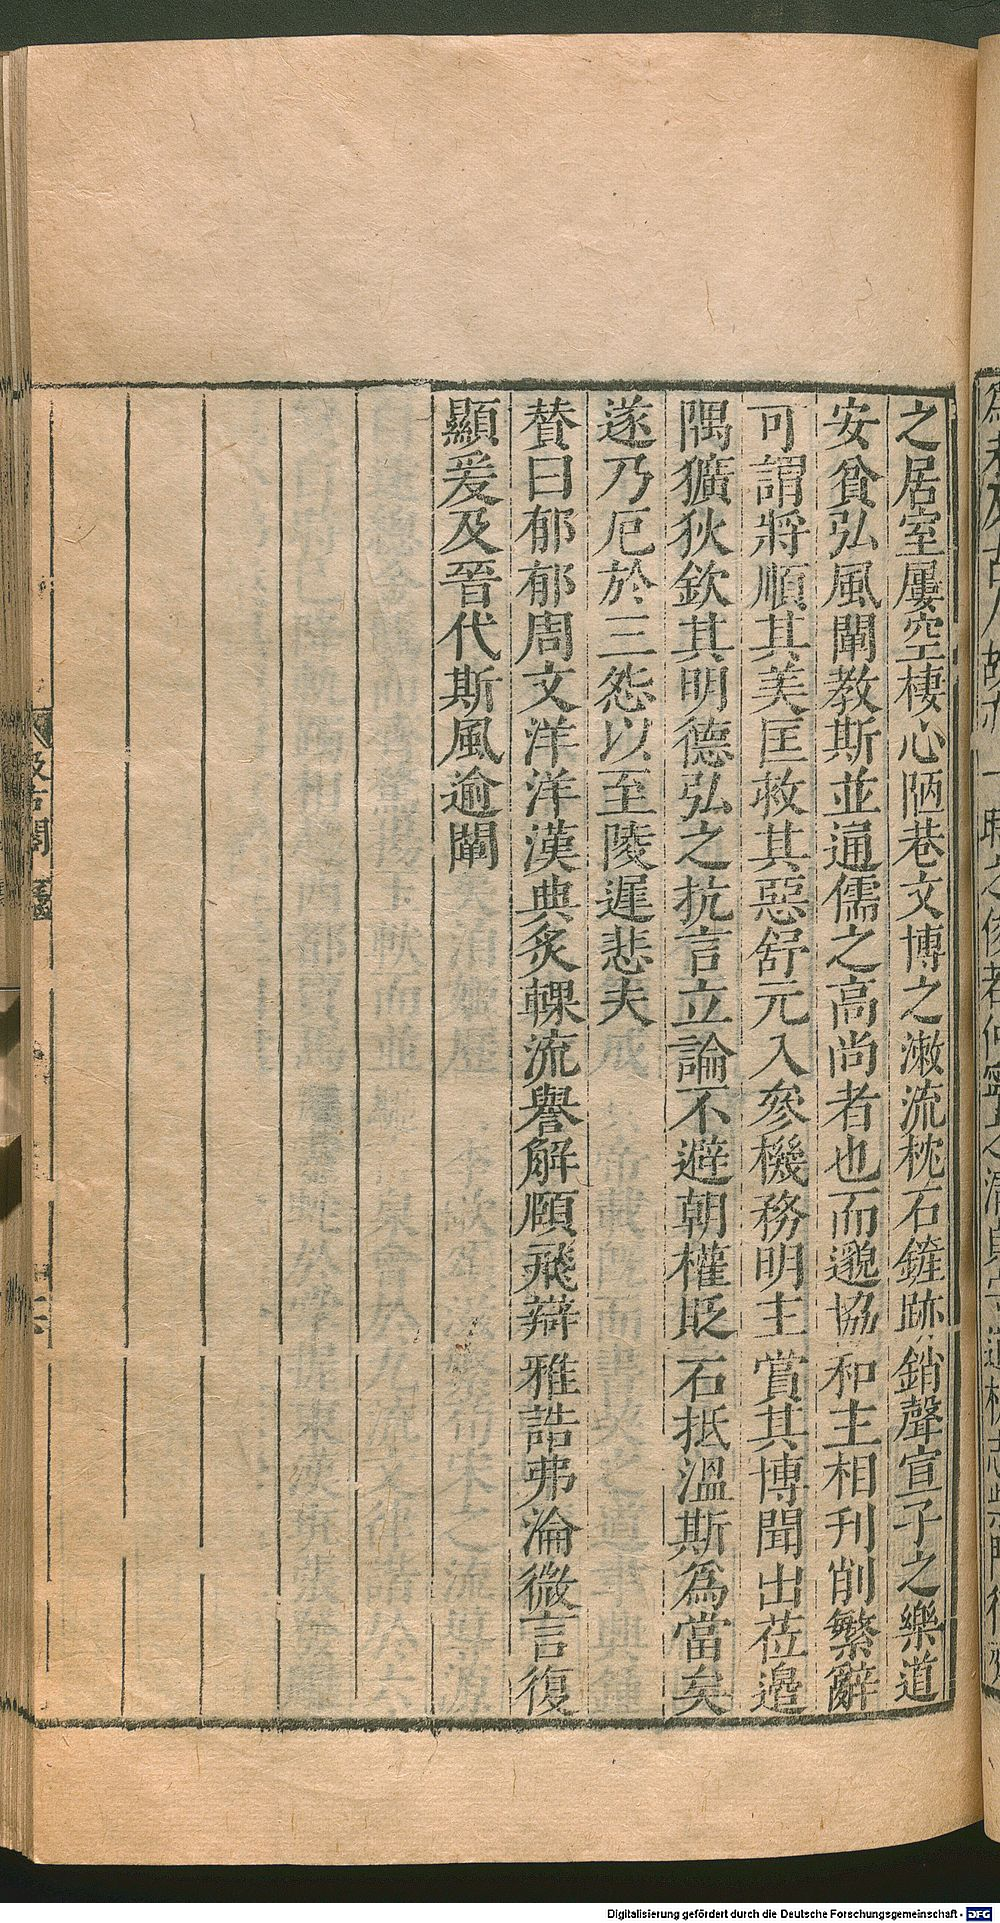 之居室屢空棲心陋巷文博之漱流枕石鏟跡銷聲宣子之樂道
安貧弘風闡教斯並通儒之高尚者也而邈協和主相刊削繁辭
可謂將順其美匡救其惡舒元入參機務明主賞其博聞出莅邊
隅獷狄欽其明德弘之抗言立論不避朝權貶石抵溫斯爲當矣
遂乃厄於三怨以至陵遲悲夫
贊曰郁郁周文洋洋漢典炙輠流譽解頤飛辯雅誥弗淪微言復
顯爰及晉代斯風逾闡
汲古閣
Digitalisierung gefördert durch die Deutsche Forschungsgemeinschaft - DFG